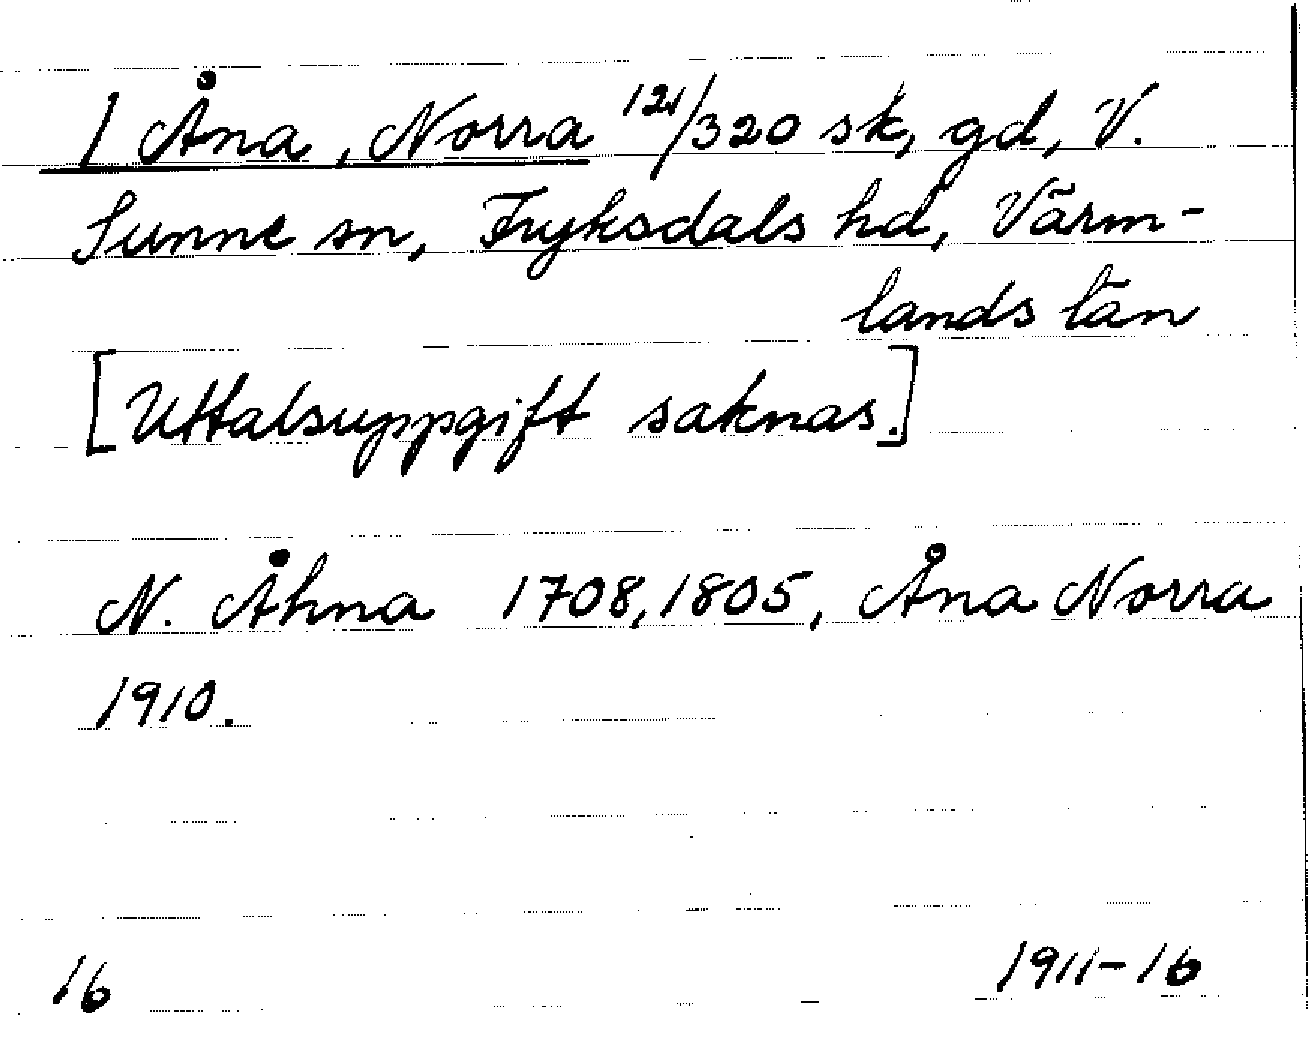 / Åna, Norra 121/320 sk, gd, V.
Sunne sn, Fryksdals hd, Värm-
lands län
[Uttalsuppgift saknas.]
N. Åhna 1708, 1805, Åna Norra
1910.
16 1911-16